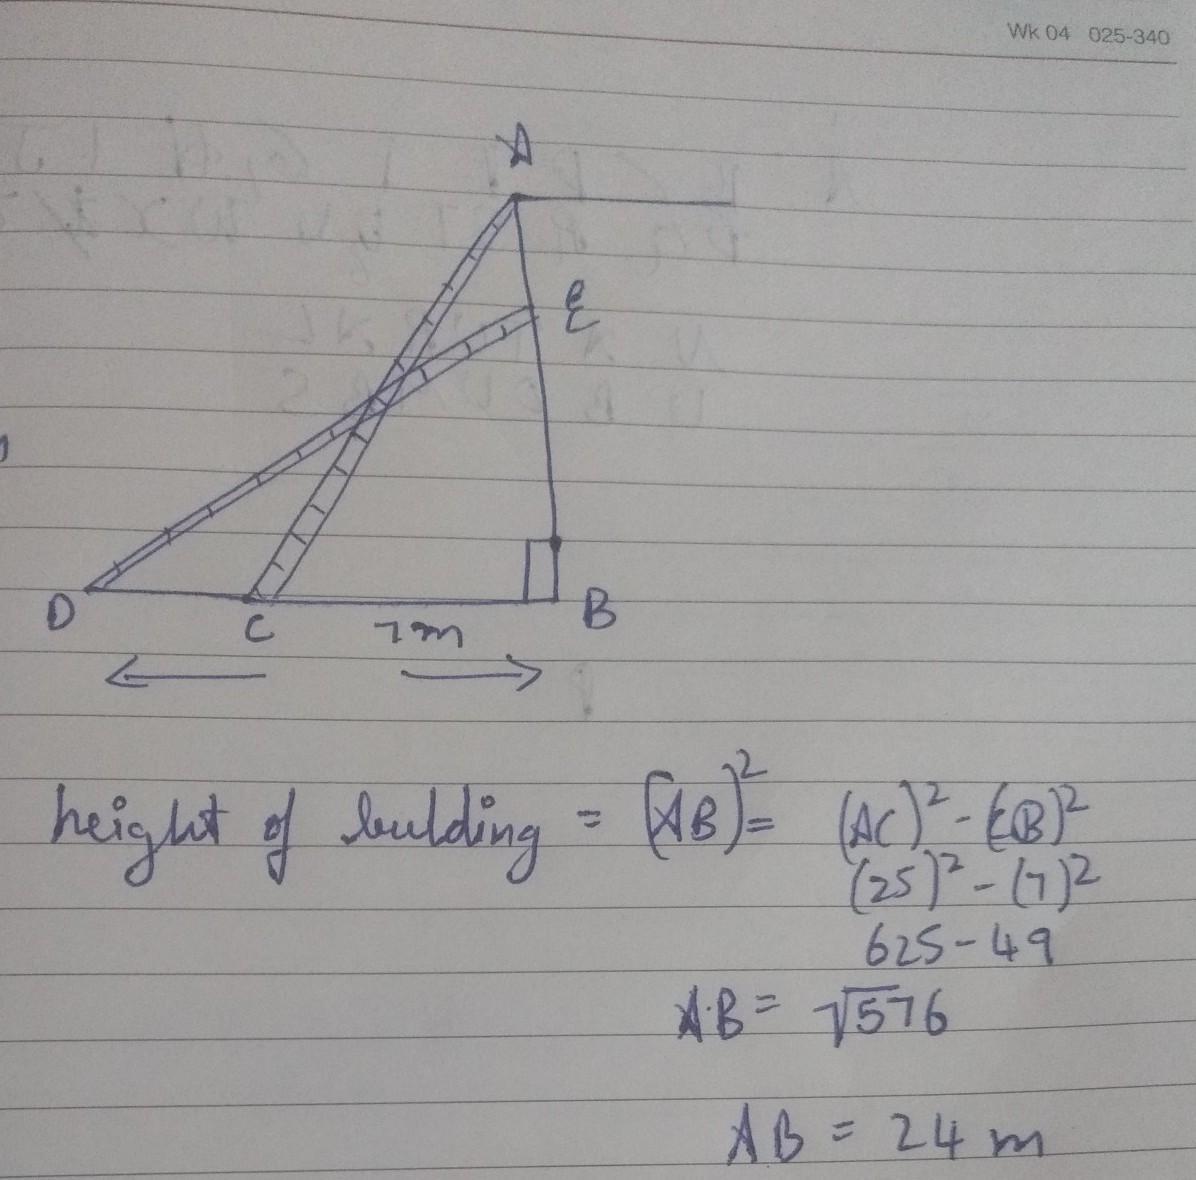 Wk 04 025-340
A
E
D
C
7m
B
height of bulding = (AB)² = (AC)² - (CB)²
(25)² - (7)²
625 - 49
AB = √576
AB = 24 m